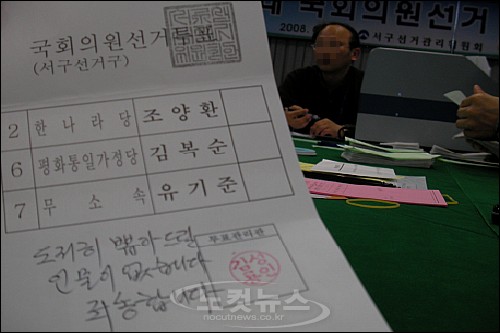 국회의원선거투표
(서구선거구)
2 한나라당 조양환
6 평화통일가정당 김복순
7 무소속 유기준
도저히 뽑아드릴
인물이 없습니다
죄송합니다
투표관리관
대 국회의원선거
2008.
서구선거관리위원회
노컷뉴스
nocutnews.co.kr